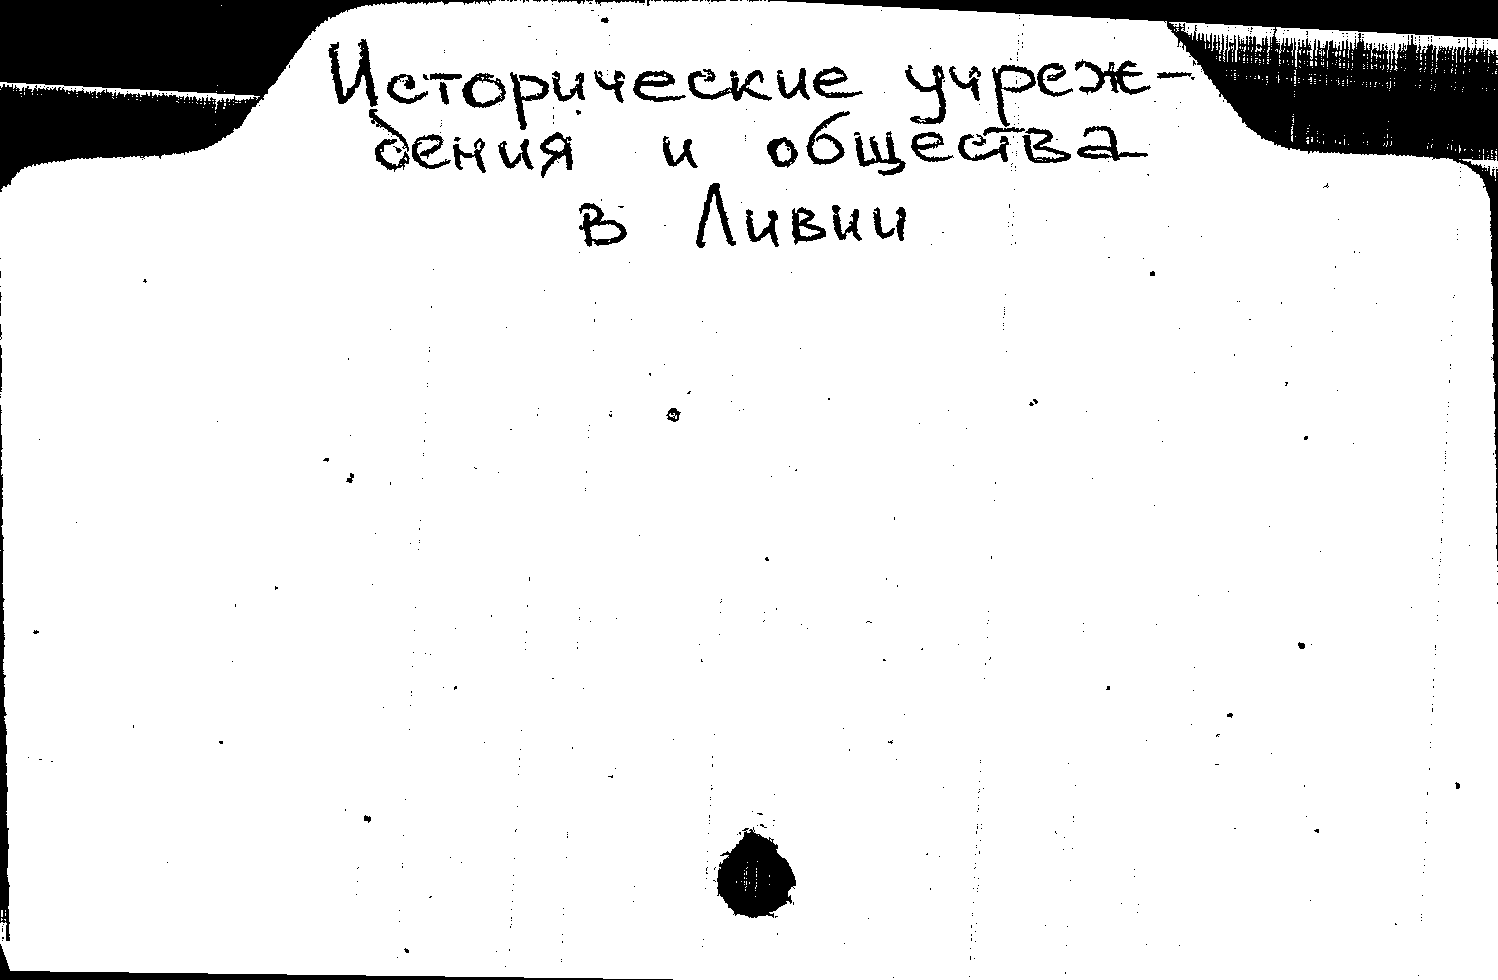 Исторические учреж-
дения и общества
в Ливии